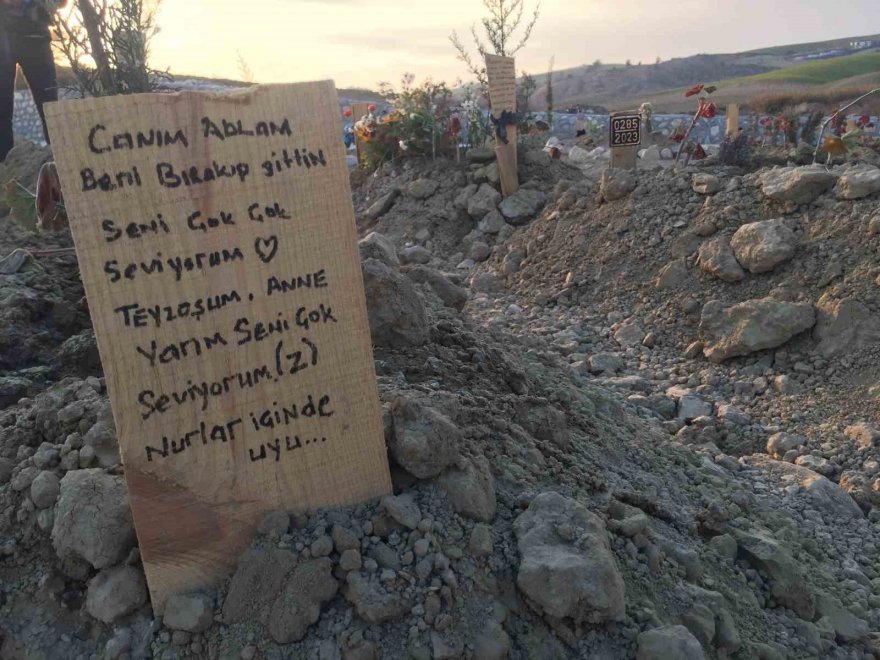 CANIM ABLAM
Beni Bırakıp gittin
Seni Çok Çok
Seviyorum ♡
TEYZOŞUM. ANNE
YARIM Seni Çok
Seviyorum.(Z)
Nurlar içinde
uyu...
0285
2023